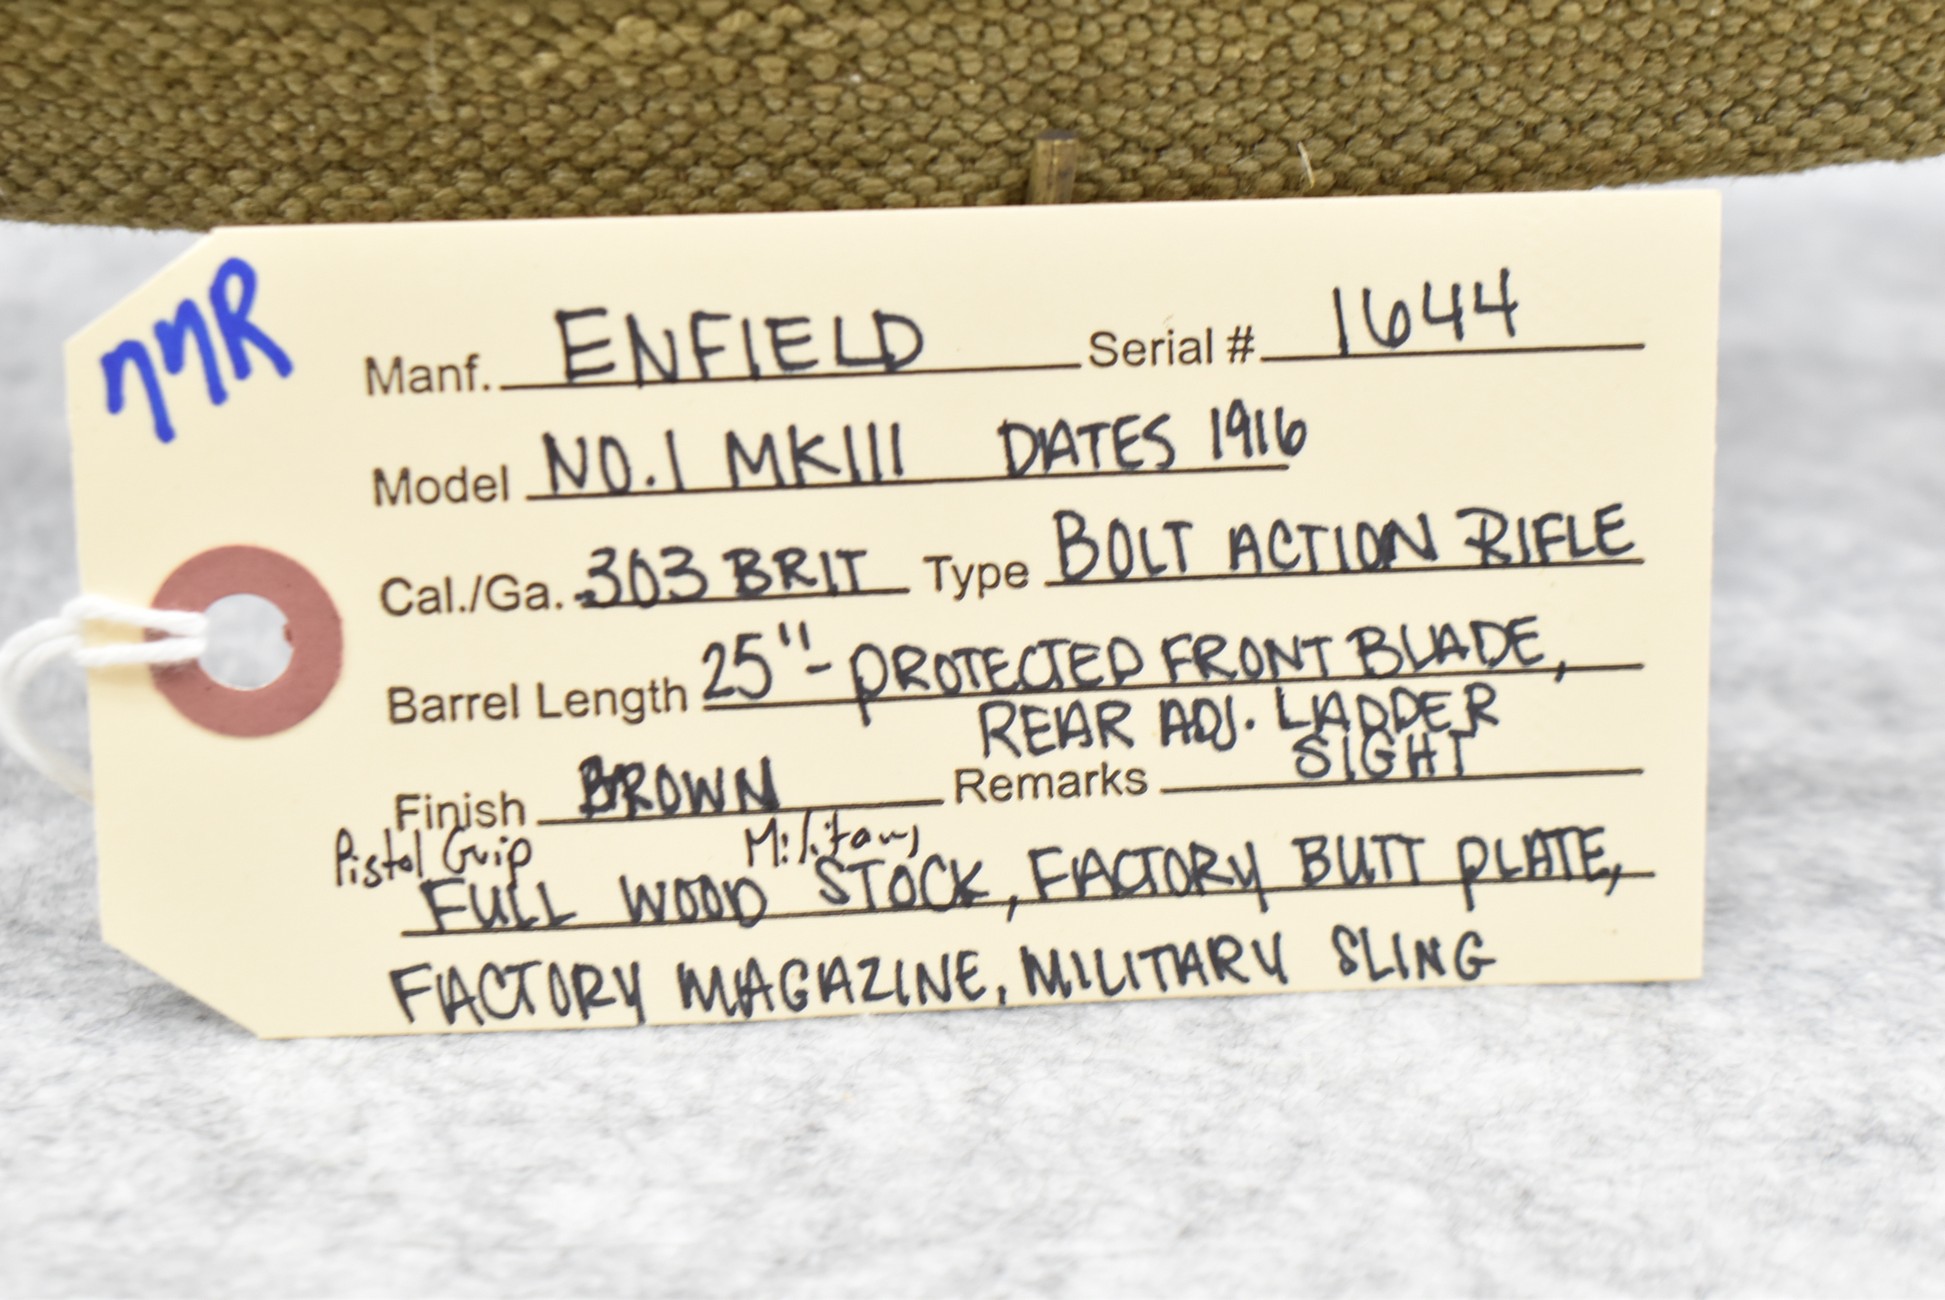 77R
Manf. ENFIELD Serial # 1644
Model NO.1 MKIII DATES 1916
Cal./Ga. .303 BRIT Type BOLT ACTION RIFLE
Barrel Length 25"- PROTECTED FRONT BLADE,
REAR ADJ. LADDER
SIGHT
Finish BROWN Remarks
Pistol Grip Military
FULL WOOD STOCK, FACTORY BUTT PLATE,
FACTORY MAGAZINE, MILITARY SLING